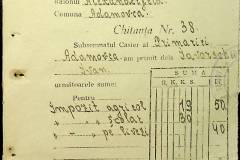 Raionul Alexandrfeld
Comuna Adamovca.
Chitanța Nr. 38.
Subsemnatul Casier al Primăriei
Adamovca am primit dela
Ivan.
următoarele sume:
SUMA
R. K. K. S.
Pentru
Impozit agricol 19 50
" " școlar 30
" - pe livezi 40